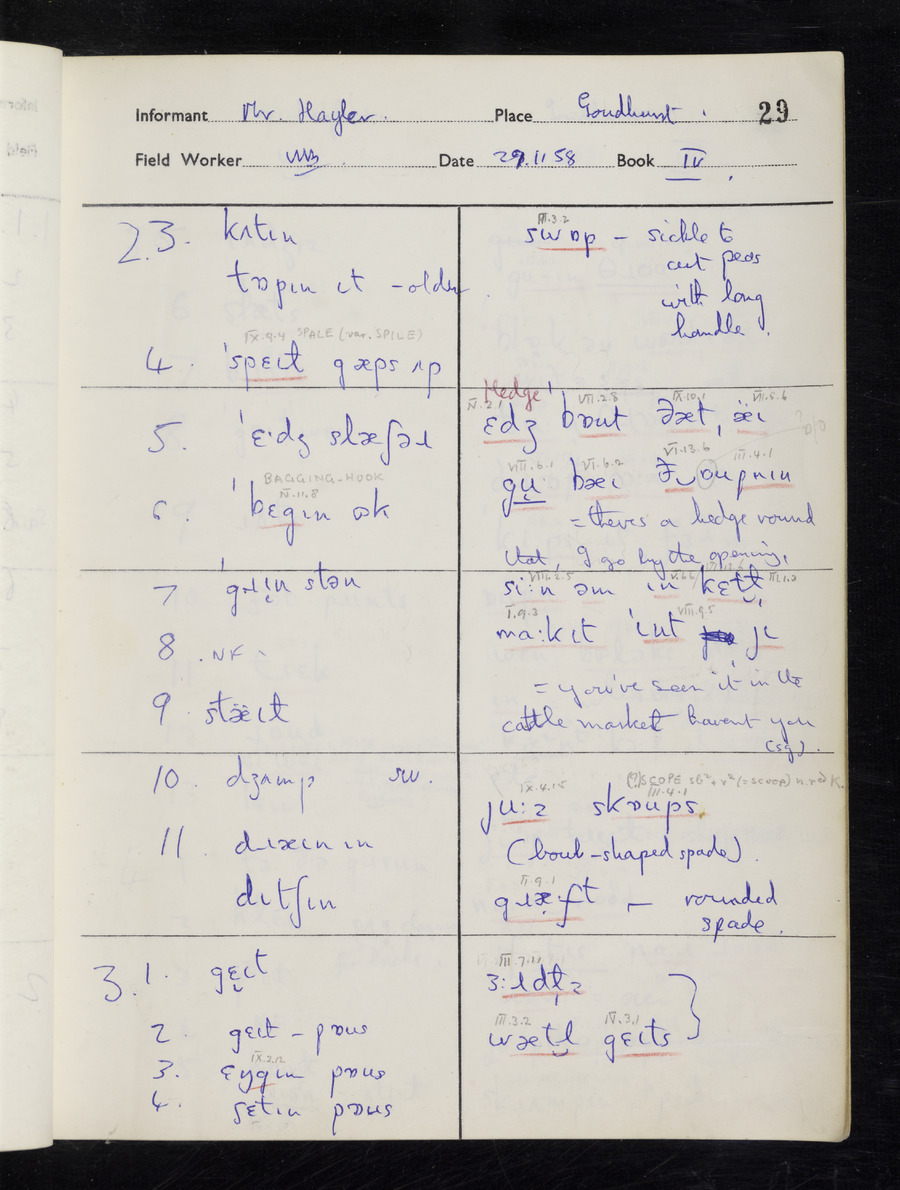 Informant Mr. Hayler. Place Goudhurst. 29
Field Worker Date 29.11.58 Book IV
2.3. kʌtɪn
tɒpɪn ɪt - older
IX.9.4 SPALE (var. SPILE)
4. ˈspɛɪɫ gæps ʌp
5. ˈɛ·dʒ slæʃəɹ
BAGGING-HOOK
IV.11.8
6. ˈbɛgɪn ɒk
7 ˈgɹɪn stən
8 . NK
9 stæɪt
10. dʒʌmp sw.
11. dɹæɪn ɪn
dɪtʃɪn
3.1. gɛɪt
2. gɛɪt - pɒʊs
IX.2.12
3. ɛŋgɪn pɒʊs
4. ʃɛtɪn pɒʊs
III.3.2
swɒp - sickle to
cut peas
with long
handle.
Hedge
IV.2.1 VII.2.8 IX.10.1 VII.5.6
ɛdʒ bɒʊt ðæt, æɪ
VIII.6.1 VI.6.2 VI.13.6 III.4.1
gu bæɪ ð ɒʊpnɪn
= theres a hedge round
that, I go by the opening.
VIII.2.5
si:n əm ɪn kɛɫ
I.9.3 VIII.9.5
ma:kɪt ˈɪnt jɪ
= you've seen it in the
cattle market havent you
(sg).
IX.4.15 (?)SCOPE sb²+v² (=SCOOP) n.red K.
III.4.1
ju:z skɒʊps
(bowl-shaped spade).
II.9.1
gɹæft - rounded
spade.
III.7.11
ɜ:ɹdɫz
III.3.2 IV.3.1
wætɫ gɛɪts